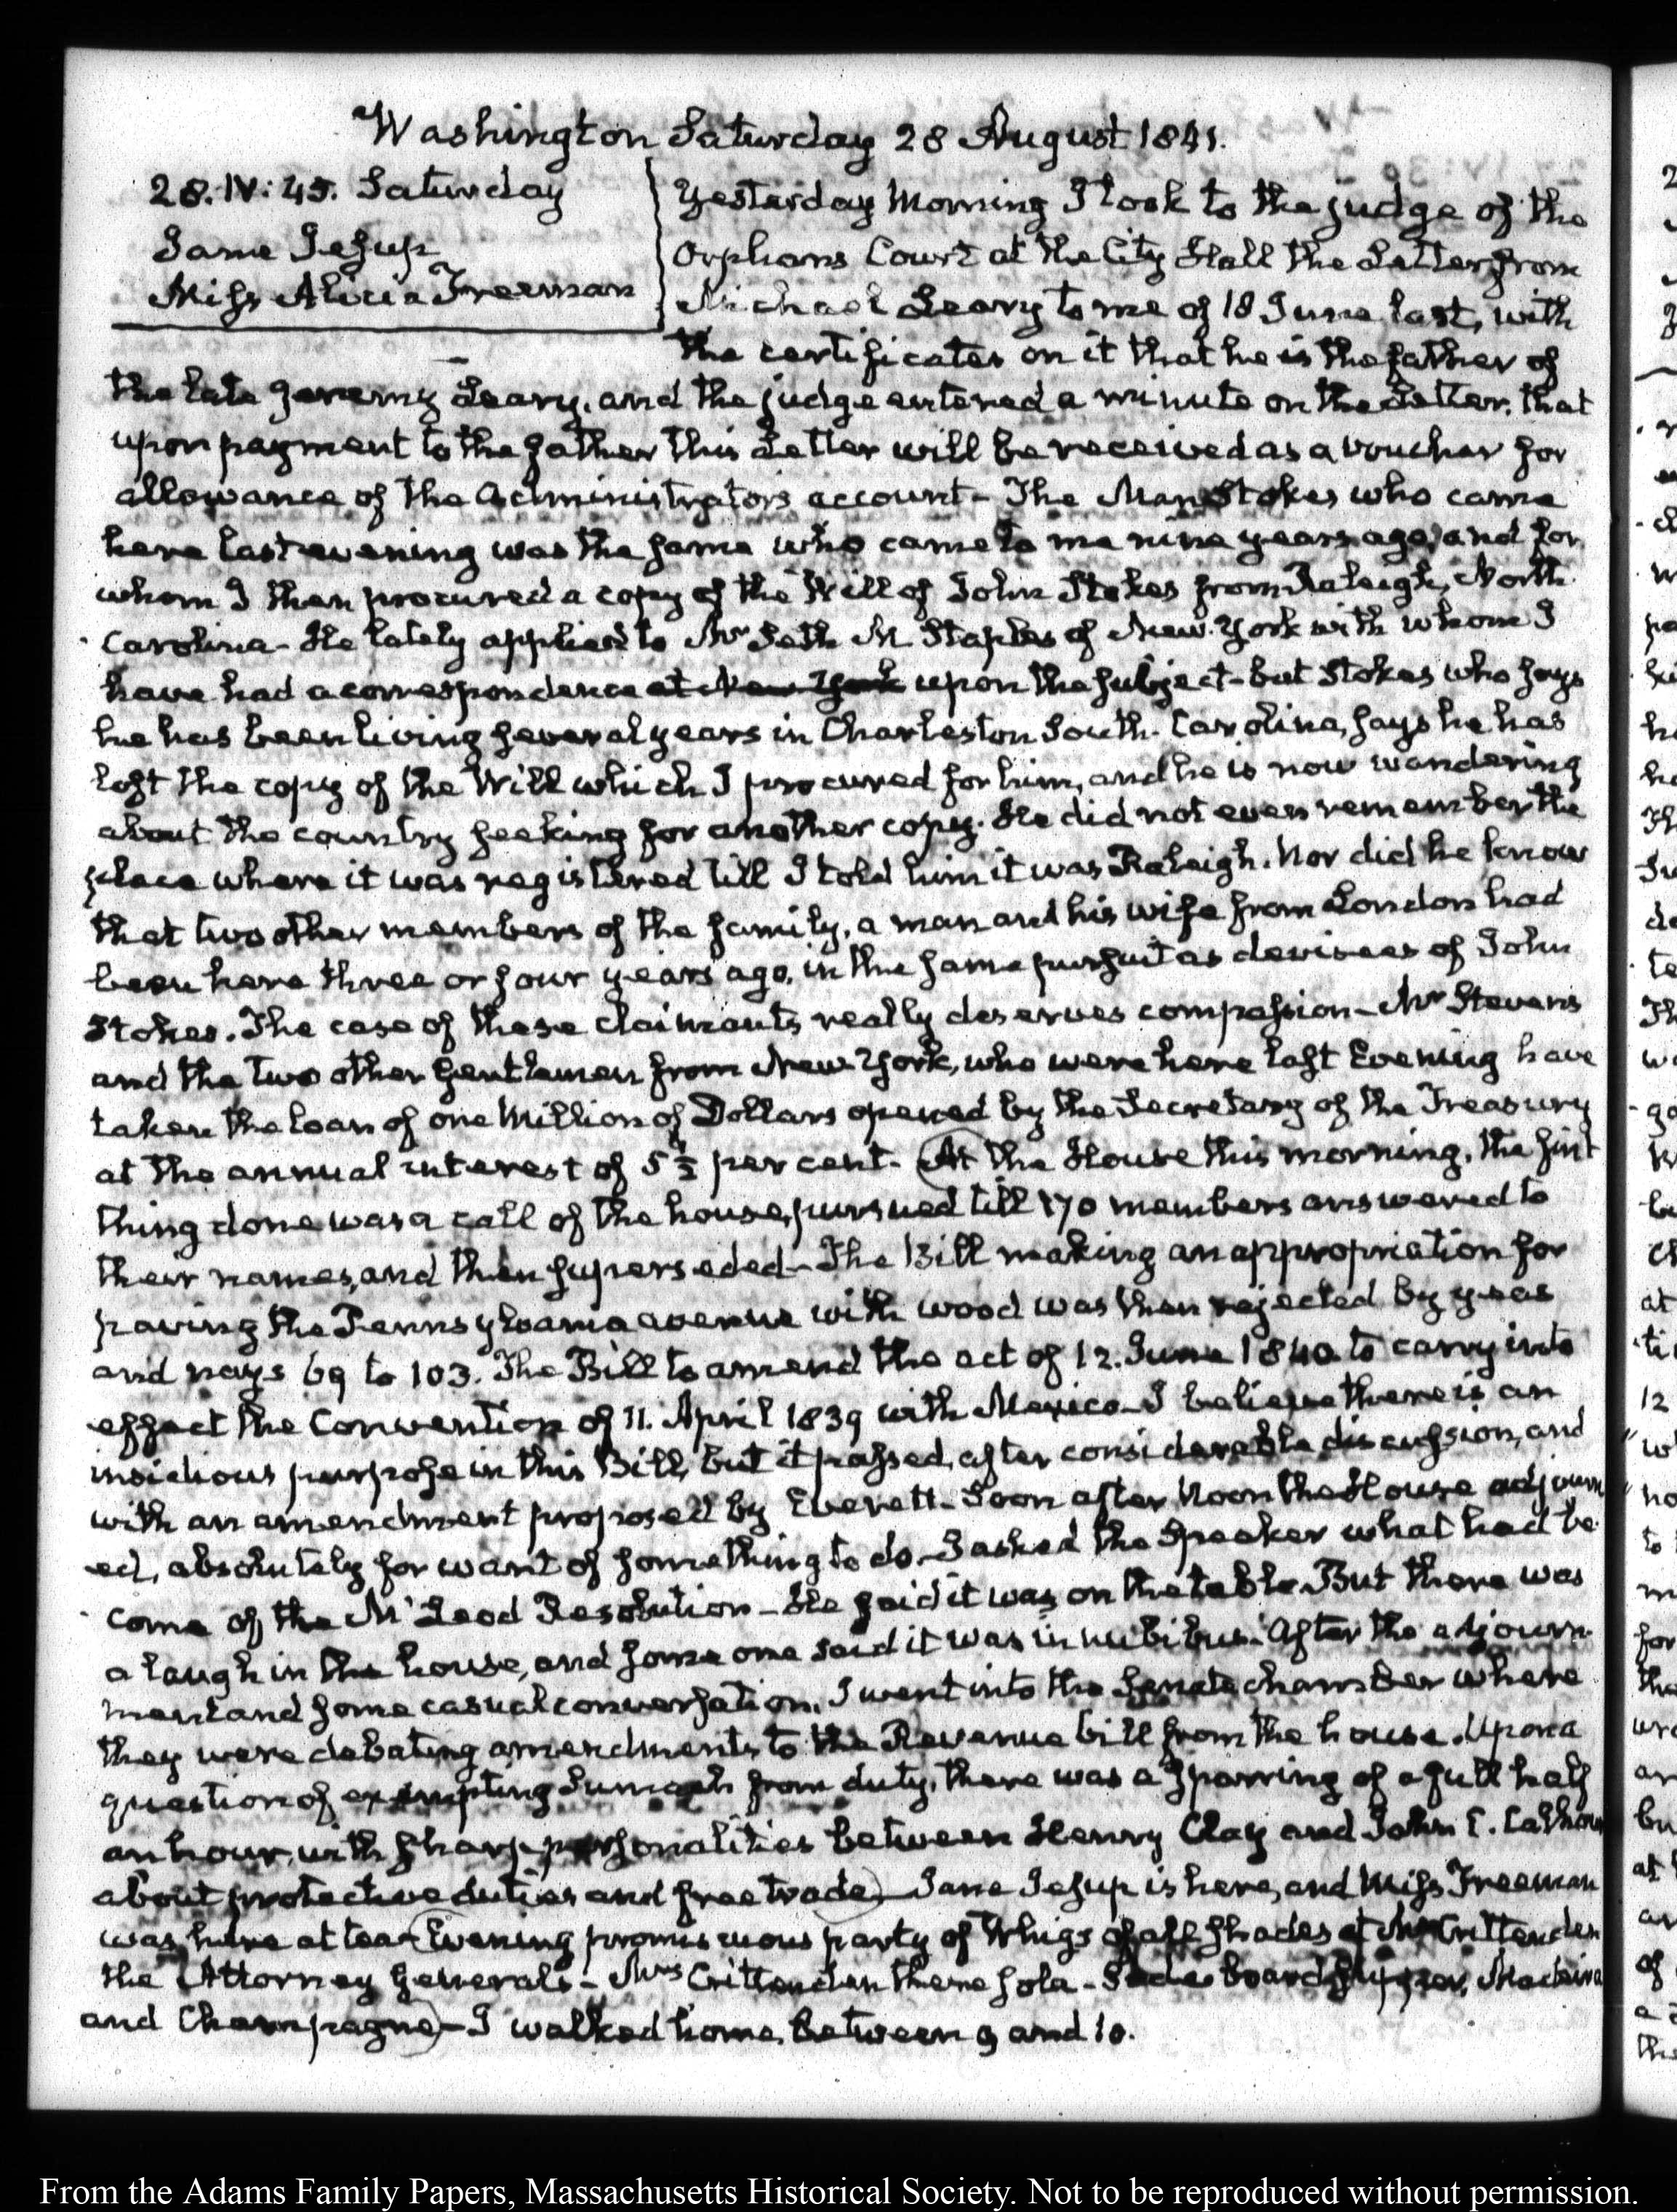 Washington Saturday 28 August 1841.
28. IV: 45. Saturday
Jane Jesup
Miss Alicia Freeman
Yesterday Morning I took to the judge of the
Orphans Court at the City Hall the Letter from
Michael Leary to me of 18 June last, with
the certificates on it that he is the father of
the late Jeremy Leary, and the judge entered a minute on the Letter, that
upon payment to the father this Letter will be received as a voucher for
allowance of the Administrator's account - The Man Stokes who came
here last evening was the same who came to me nine years ago, and for
whom I then procured a copy of the Will of John Stokes from Raleigh, North
Carolina - He lately applied to Mr Seth M. Staples of New-York with whom I
have had a correspondence at New York upon the subject - but Stokes who says
he has been living several years in Charleston South-Carolina, says he has
lost the copy of the Will which I procured for him, and he is now wandering
about the country seeking for another copy. He did not even remember the
place where it was registered till I told him it was Raleigh. Nor did he know
that two other members of the family, a man and his wife from London had
been here three or four years ago, in the same pursuit as devisees of John
Stokes. The case of these claimants really deserves compassion - Mr Stevens
and the two other Gentlemen from New-York, who were here last Evening have
taken the loan of one Million of Dollars opened by the Secretary of the Treasury
at the annual interest of 5 1/2 per cent. At the House this morning, the first
thing done was a call of the house, pursued till 170 members answered to
their names, and then superseded - The Bill making an appropriation for
paving the Pennsylvania avenue with wood was then rejected by yeas
and nays 69 to 103. The Bill to amend the act of 12. June 1840. to carry into
effect the Convention of 11. April 1839 with Mexico - I believe there is an
insidious purpose in this Bill, but it passed, after considerable discussion, and
with an amendment proposed by Everett - Soon after Noon the House adjourn
ed, absolutely for want of something to do - I asked the Speaker what had be
come of the McLeod Resolution - He said it was on the table. But there was
a laugh in the house, and some one said it was in nubibus. After the adjourn
ment and some casual conversation, I went into the Senate chamber where
they were debating amendments to the Revenue bill from the house. Upon a
question of exempting Sumach from duty, there was a sparring of a full half
an hour, with sharp personalities between Henry Clay and John C. Calhoun
about protective duties and free trade - Jane Jesup is here, and Miss Freeman
was here at tea - Evening promiscuous party of Whigs of all shades at Mr Crittenden
the Attorney General's - Mrs Crittenden there sola - Side board supper, Madeira
and Champagne - I walked home, between 9 and 10.
From the Adams Family Papers, Massachusetts Historical Society. Not to be reproduced without permission.